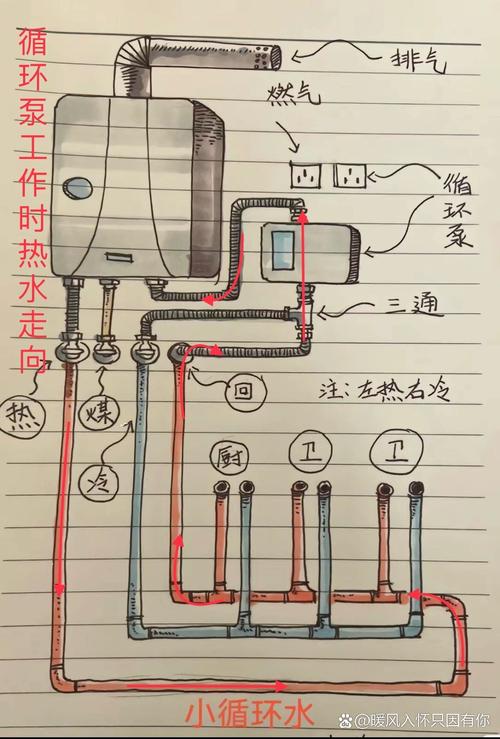 循环泵工作时热水走向
排气
燃气
循环泵
三通
回
注:左热右冷
热
煤
冷
厨
卫
卫
小循环水
@暖风入怀只因有你